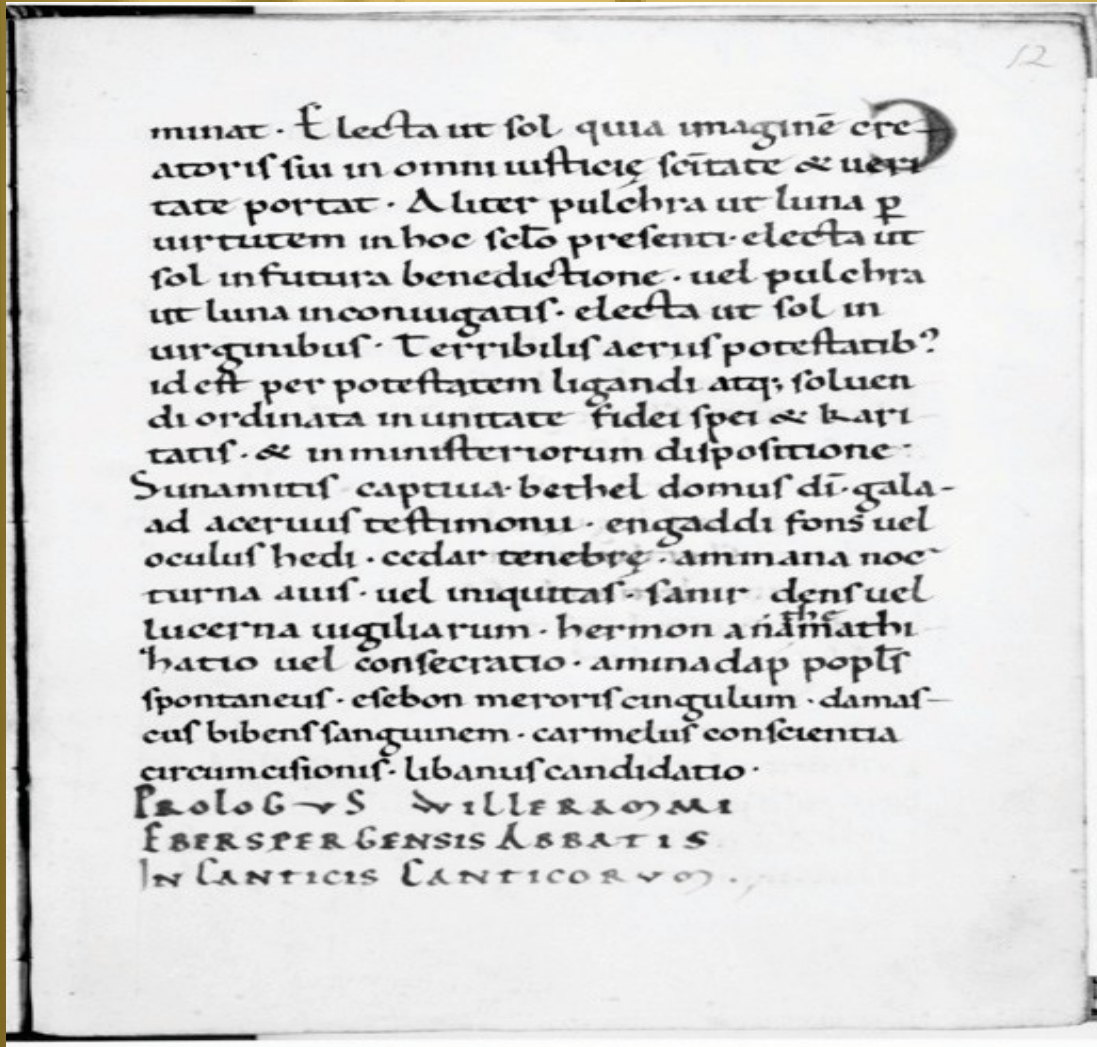 12
minat · Electa ut sol quia imaginē cre
atoris sui in omni iusticię scītate & ueri
tate portat · Aliter pulchra ut luna ꝑ
uirtutem in hoc sc̄lo presenti · electa ut
sol in futura benedictione · uel pulchra
ut luna in coniugatis · electa ut sol in
uirginibus · Terribilis aeriis potestatib;
id est per potestatem ligandi atq; soluen
di ordinata in unitate fidei spei & kari
tatis · & in ministeriorum dispositione ·
Sunamitis captiua · bethel domus dī · gala-
ad aceruus testimonii · engaddi fons uel
oculus hedi · cedar tenebrę · ammana noc
turna auis · uel iniquitas · sanir dens uel
lucerna uigiliarum · hermon
hatio uel consecratio · aminadap popl̄s
spontaneus · esebon meroris cingulum · damas-
cus bibens sanguinem · carmelus conscientia
circumcisionis · libanus candidatio ·
PROLOGVS WILLERAMMI
EBERSPERGENSIS ABBATIS
IN CANTICIS CANTICORVM .